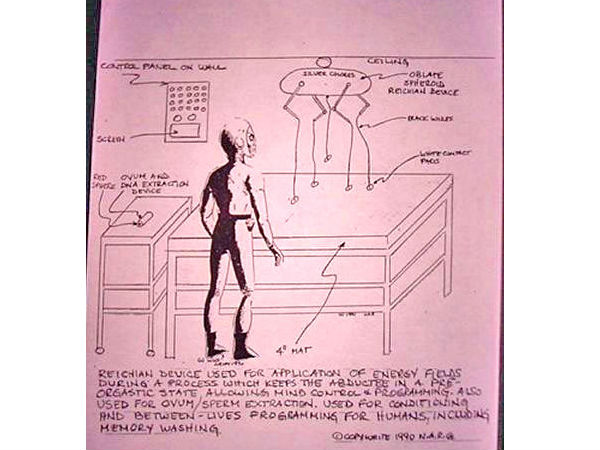 CEILING
CONTROL PANEL ON WALL
SILVER
OBLATE
SPHEROID
REICHIAN DEVICE
BLACK WIRES
SCREEN
WHITE CONTACT
PADS
RED
SPHERE
OVUM AND
DNA EXTRACTION
DEVICE
4" MAT
REICHIAN DEVICE USED FOR APPLICATION OF ENERGY FIELDS
DURING A PROCESS WHICH KEEPS THE ABDUCTEE IN A PRE-
ORGASTIC STATE, ALLOWING MIND CONTROL & PROGRAMMING. ALSO
USED FOR OVUM/SPERM EXTRACTION. USED FOR CONDITIONING
AND BETWEEN-LIVES PROGRAMMING FOR HUMANS, INCLUDING
MEMORY WASHING.
©COPYWRITE 1990 N.A.R.@